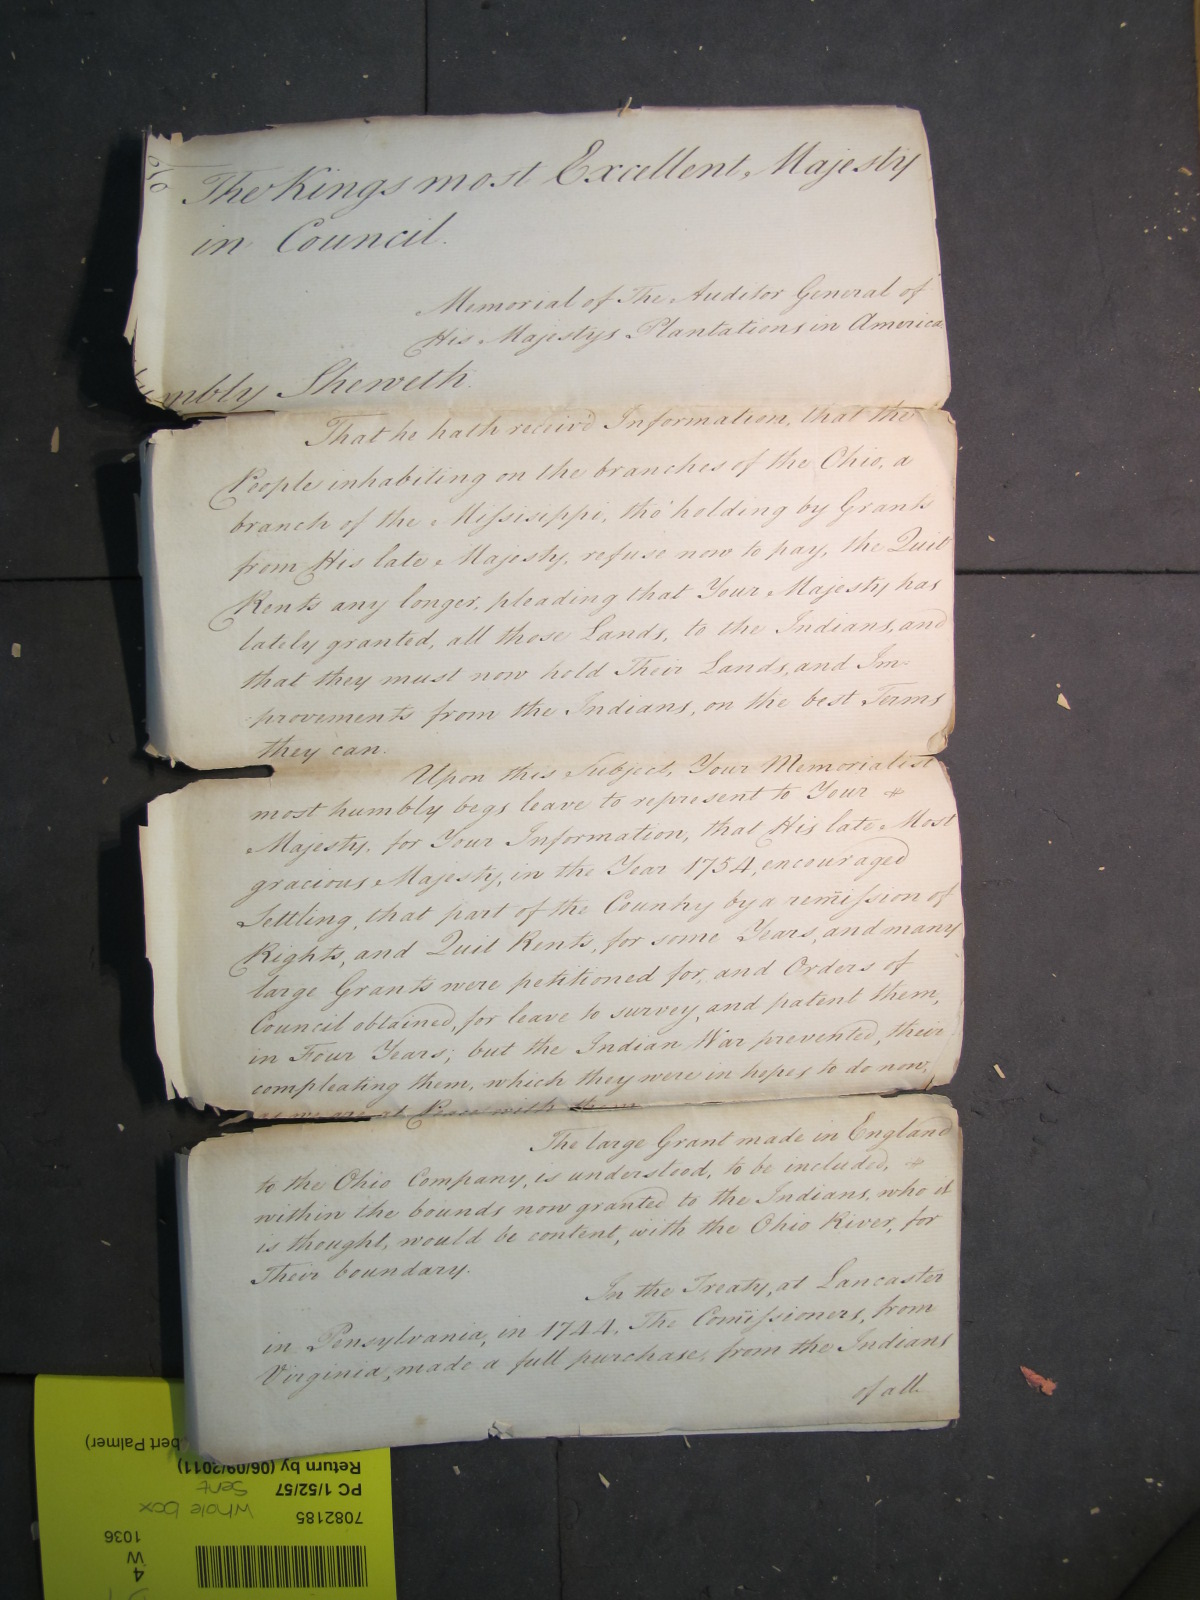 To
The Kings most Excellent Majesty
in Council.
Memorial of The Auditor General of
His Majestys Plantations in America
umbly Sheweth.
That he hath receiv'd Information, that the
People inhabiting on the branches of the Ohio, a
branch of the Missisippi, tho' holding by Grants
from His late Majesty, refuse now to pay, the Quit
Rents any longer, pleading that Your Majesty has
lately granted, all those Lands, to the Indians, and
that they must now hold Their Lands, and Im-
provements from the Indians, on the best Terms
they can.
Upon this Subject, Your Memorialist
most humbly begs leave to represent to Your
Majesty, for Your Information, that His late Most
gracious Majesty, in the Year 1754, encouraged
Settling, that part of the Country by a remission of
Rights, and Quit Rents, for some Years, and many
large Grants were petitioned for, and Orders of
Council obtained, for leave to survey, and patent them,
in Four Years; but the Indian War prevented, their
compleating them, which they were in hopes to do now,
as we are at Peace with them
The large Grant made in England
to the Ohio Company, is understood, to be included,
within the bounds now granted to the Indians, who it
is thought, would be content, with the Ohio River, for
Their boundary.
In the Treaty, at Lancaster
in Pensylvania, in 1744, The Comissioners, from
Virginia, made a full purchase, from the Indians
of all
bert Palmer)
Return by (06/09/2011)
PC 1/52/57 Sent
7082185 Whole box
1036
W
4